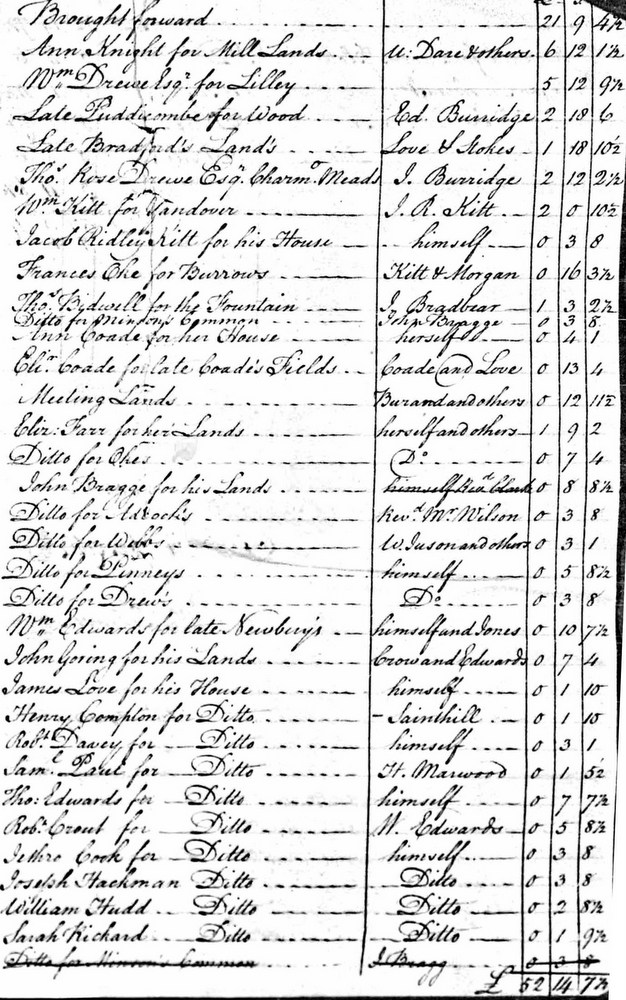 Brought forward 21 9 4½
Ann Knight for Mill Lands U: Dare & others 6 12 1½
Wm Drewe Esqr for Lilley 5 12 9½
Late Puddicombe for Wood Ed. Burridge 2 18 6
Late Bradford's Lands Love & Stokes 1 18 10½
Thos Rose Drewe Esqr Charmo Meads J. Burridge 2 12 2½
Wm Kitt for Yandover J. R. Kitt 2 0 10½
Jacob Ridley Kitt for his House himself 0 3 8
Frances Oke for Burrows Kitt & Morgan 0 16 3½
Thos Bidwell for the Fountain J. Bradbear 1 3 2½
Ditto for Minson's Common John Bragge 0 3 8
Ann Coade for her House herself 0 4 1
Eliz. Coade for late Coade's Fields Coade and Love 0 13 4
Meeting Lands Burand and others 0 12 11½
Eliz: Farr for her Lands herself and others 1 9 2
Ditto for Okes Do 0 7 4
John Bragge for his Lands himself Revd Clark 0 8 8½
Ditto for Advock's Revd Mr Wilson 0 3 8
Ditto for Webb's W. Juson and others 0 3 1
Ditto for Pinneys himself 0 5 8½
Ditto for Drew's Do 0 3 8
Wm Edwards for late Newbery's himself and Jones 0 10 7½
John Goring for his Lands Crow and Edwards 0 7 4
James Love for his House himself 0 1 10
Henry Compton for Ditto Sainthill 0 1 10
Robt Davey for Ditto himself 0 3 1
Saml Paul for Ditto H. Marwood 0 1 5½
Tho: Edwards for Ditto himself 0 7 7½
Robt Crout for Ditto W. Edwards 0 5 8½
Jethro Cook for Ditto himself 0 3 8
Joseph Hackman Ditto Ditto 0 3 8
William Hudd Ditto Ditto 0 2 8½
Sarah Rickard Ditto Ditto 0 1 9½
Ditto for Minson's Common J Bragg 0 3 8
£ 52 14 7½